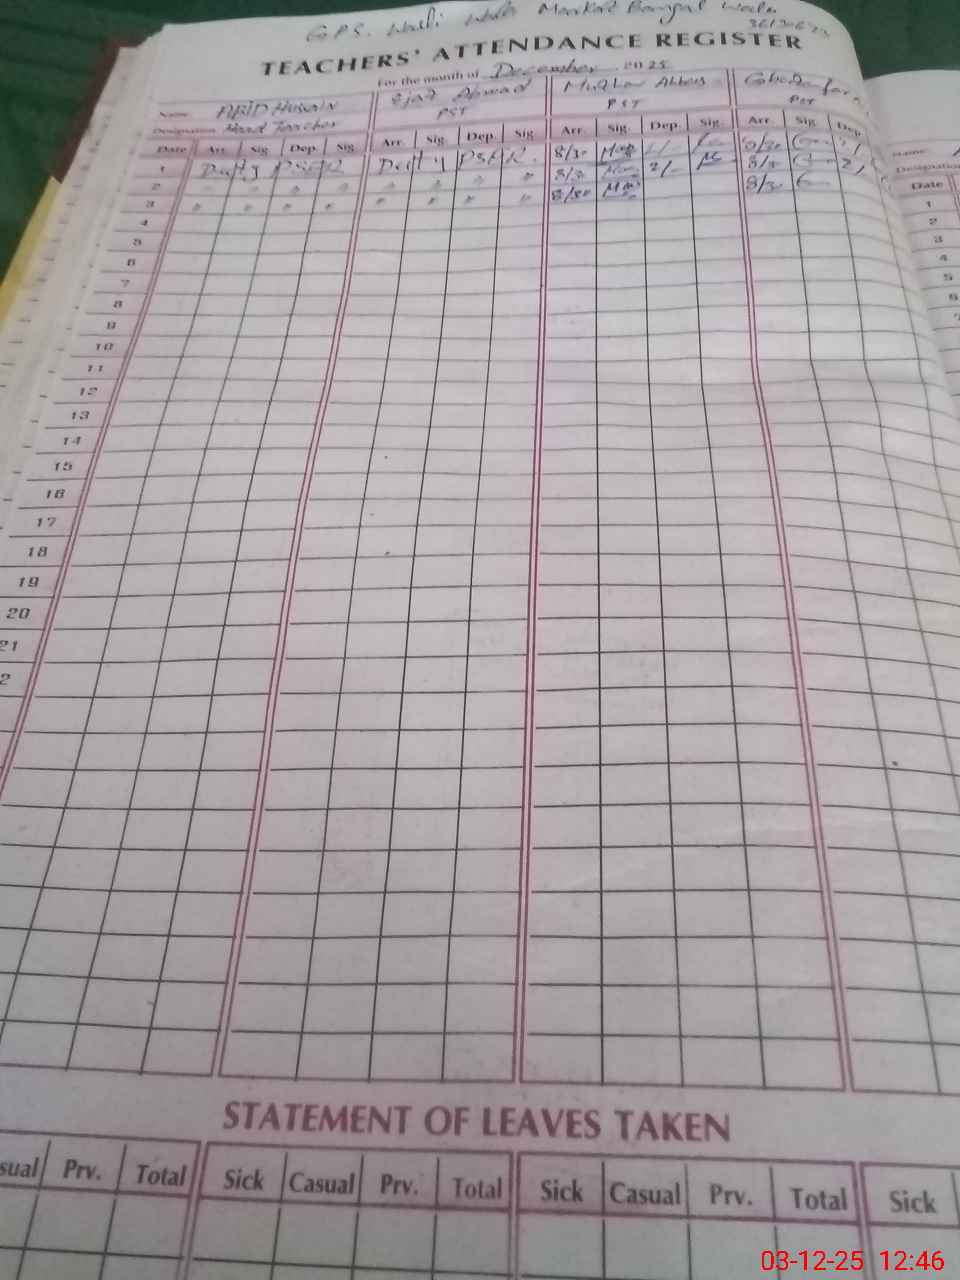 G.P.S. Wali Wala
TEACHERS' ATTENDANCE REGISTER
For the month of December 2025
Name ABID Hussain Ejaz Ahmad
Designation Head Teacher PST PST PST
Date Arr. Sig Dep. Sig. Arr. Sig Dep. Sig. Arr. Sig. Dep. Sig. Arr. Sig. Dep.
1 Duty PSER Duty PSER. 8/30 8/30
2 " " " " " " " " 8/30 2/- 8/30
3 " " " " " " " " 8/30 8/30
4
5
6
7
8
9
10
11
12
13
14
15
16
17
18
19
20
21
2
STATEMENT OF LEAVES TAKEN
sual Prv. Total Sick Casual Prv. Total Sick Casual Prv. Total Sick
Name
Designation
Date
1
2
3
4
5
6
03-12-25 12:46